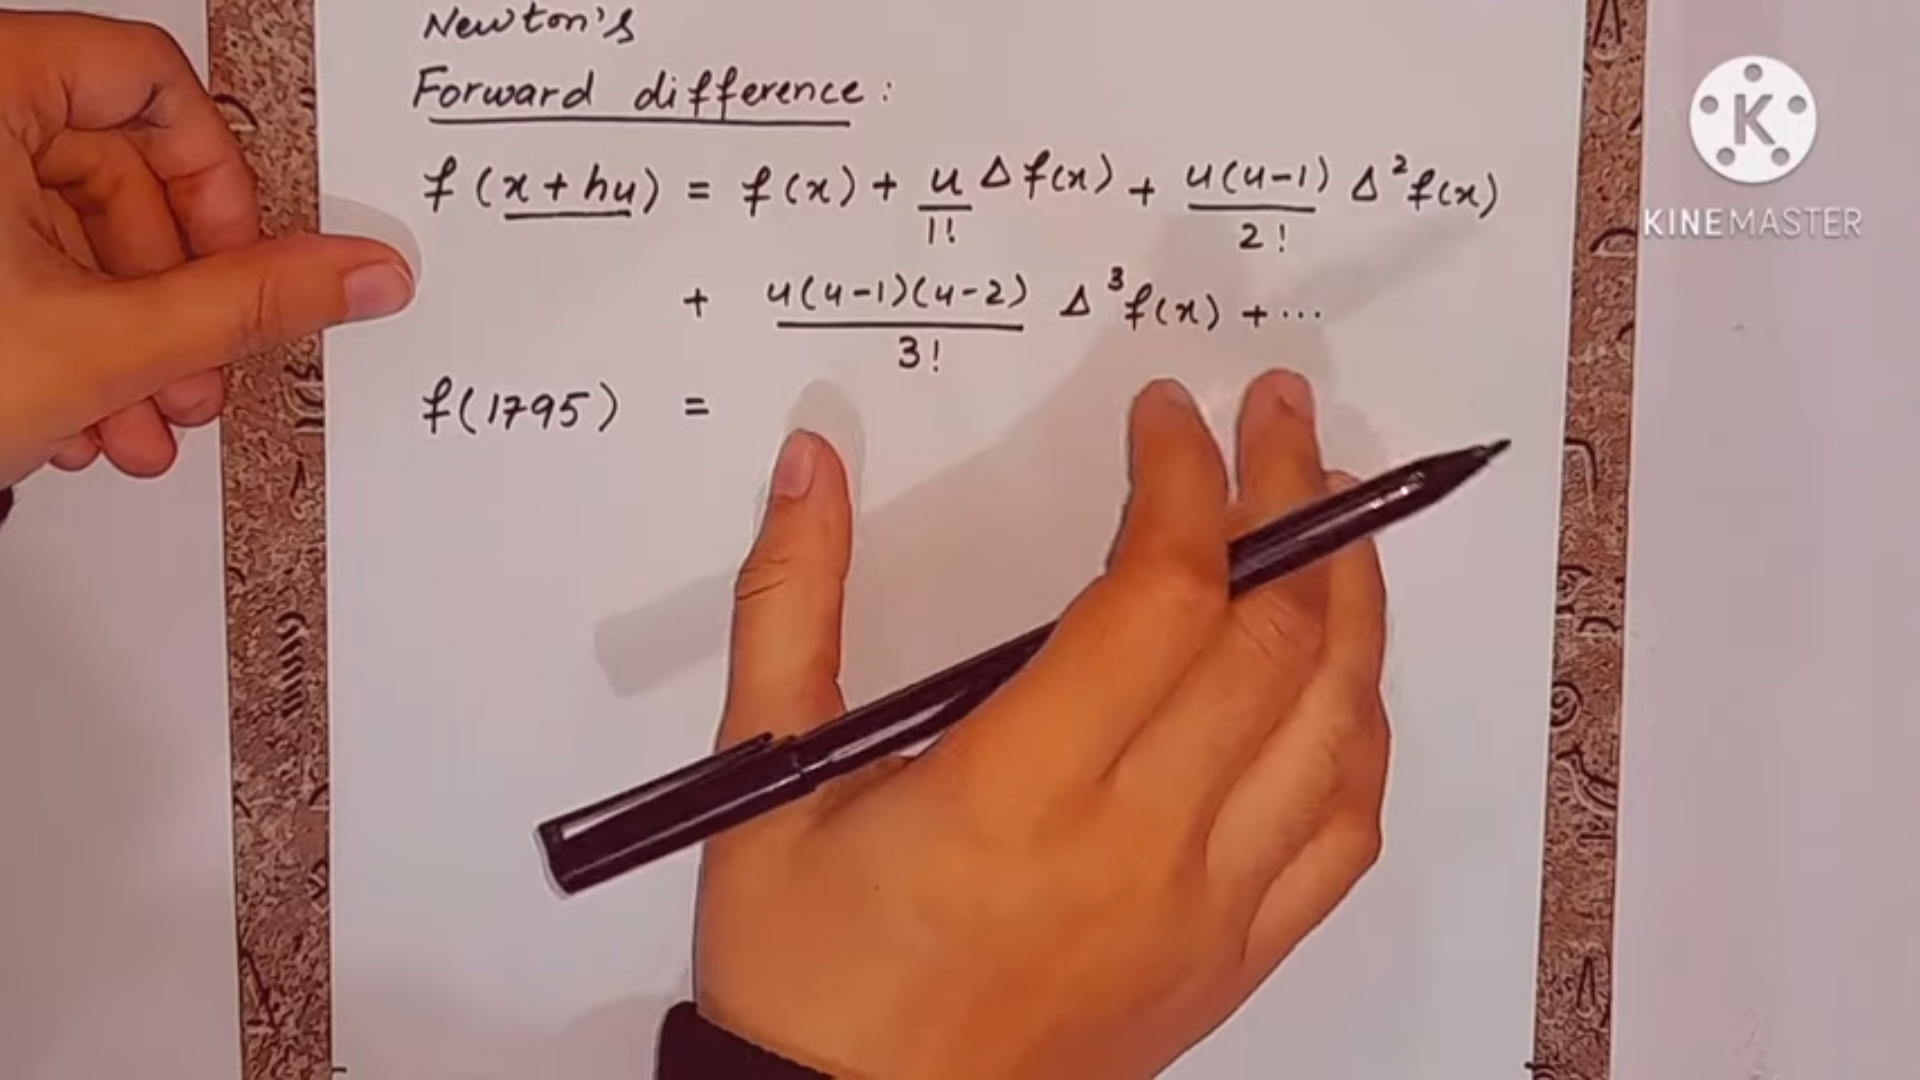 Newton's
Forward difference:
f(x+hu) = f(x) + u/1! Δf(x) + u(u-1)/2! Δ²f(x)
+ u(u-1)(u-2)/3! Δ³f(x) + ...
f(1795) =
K
KINEMASTER